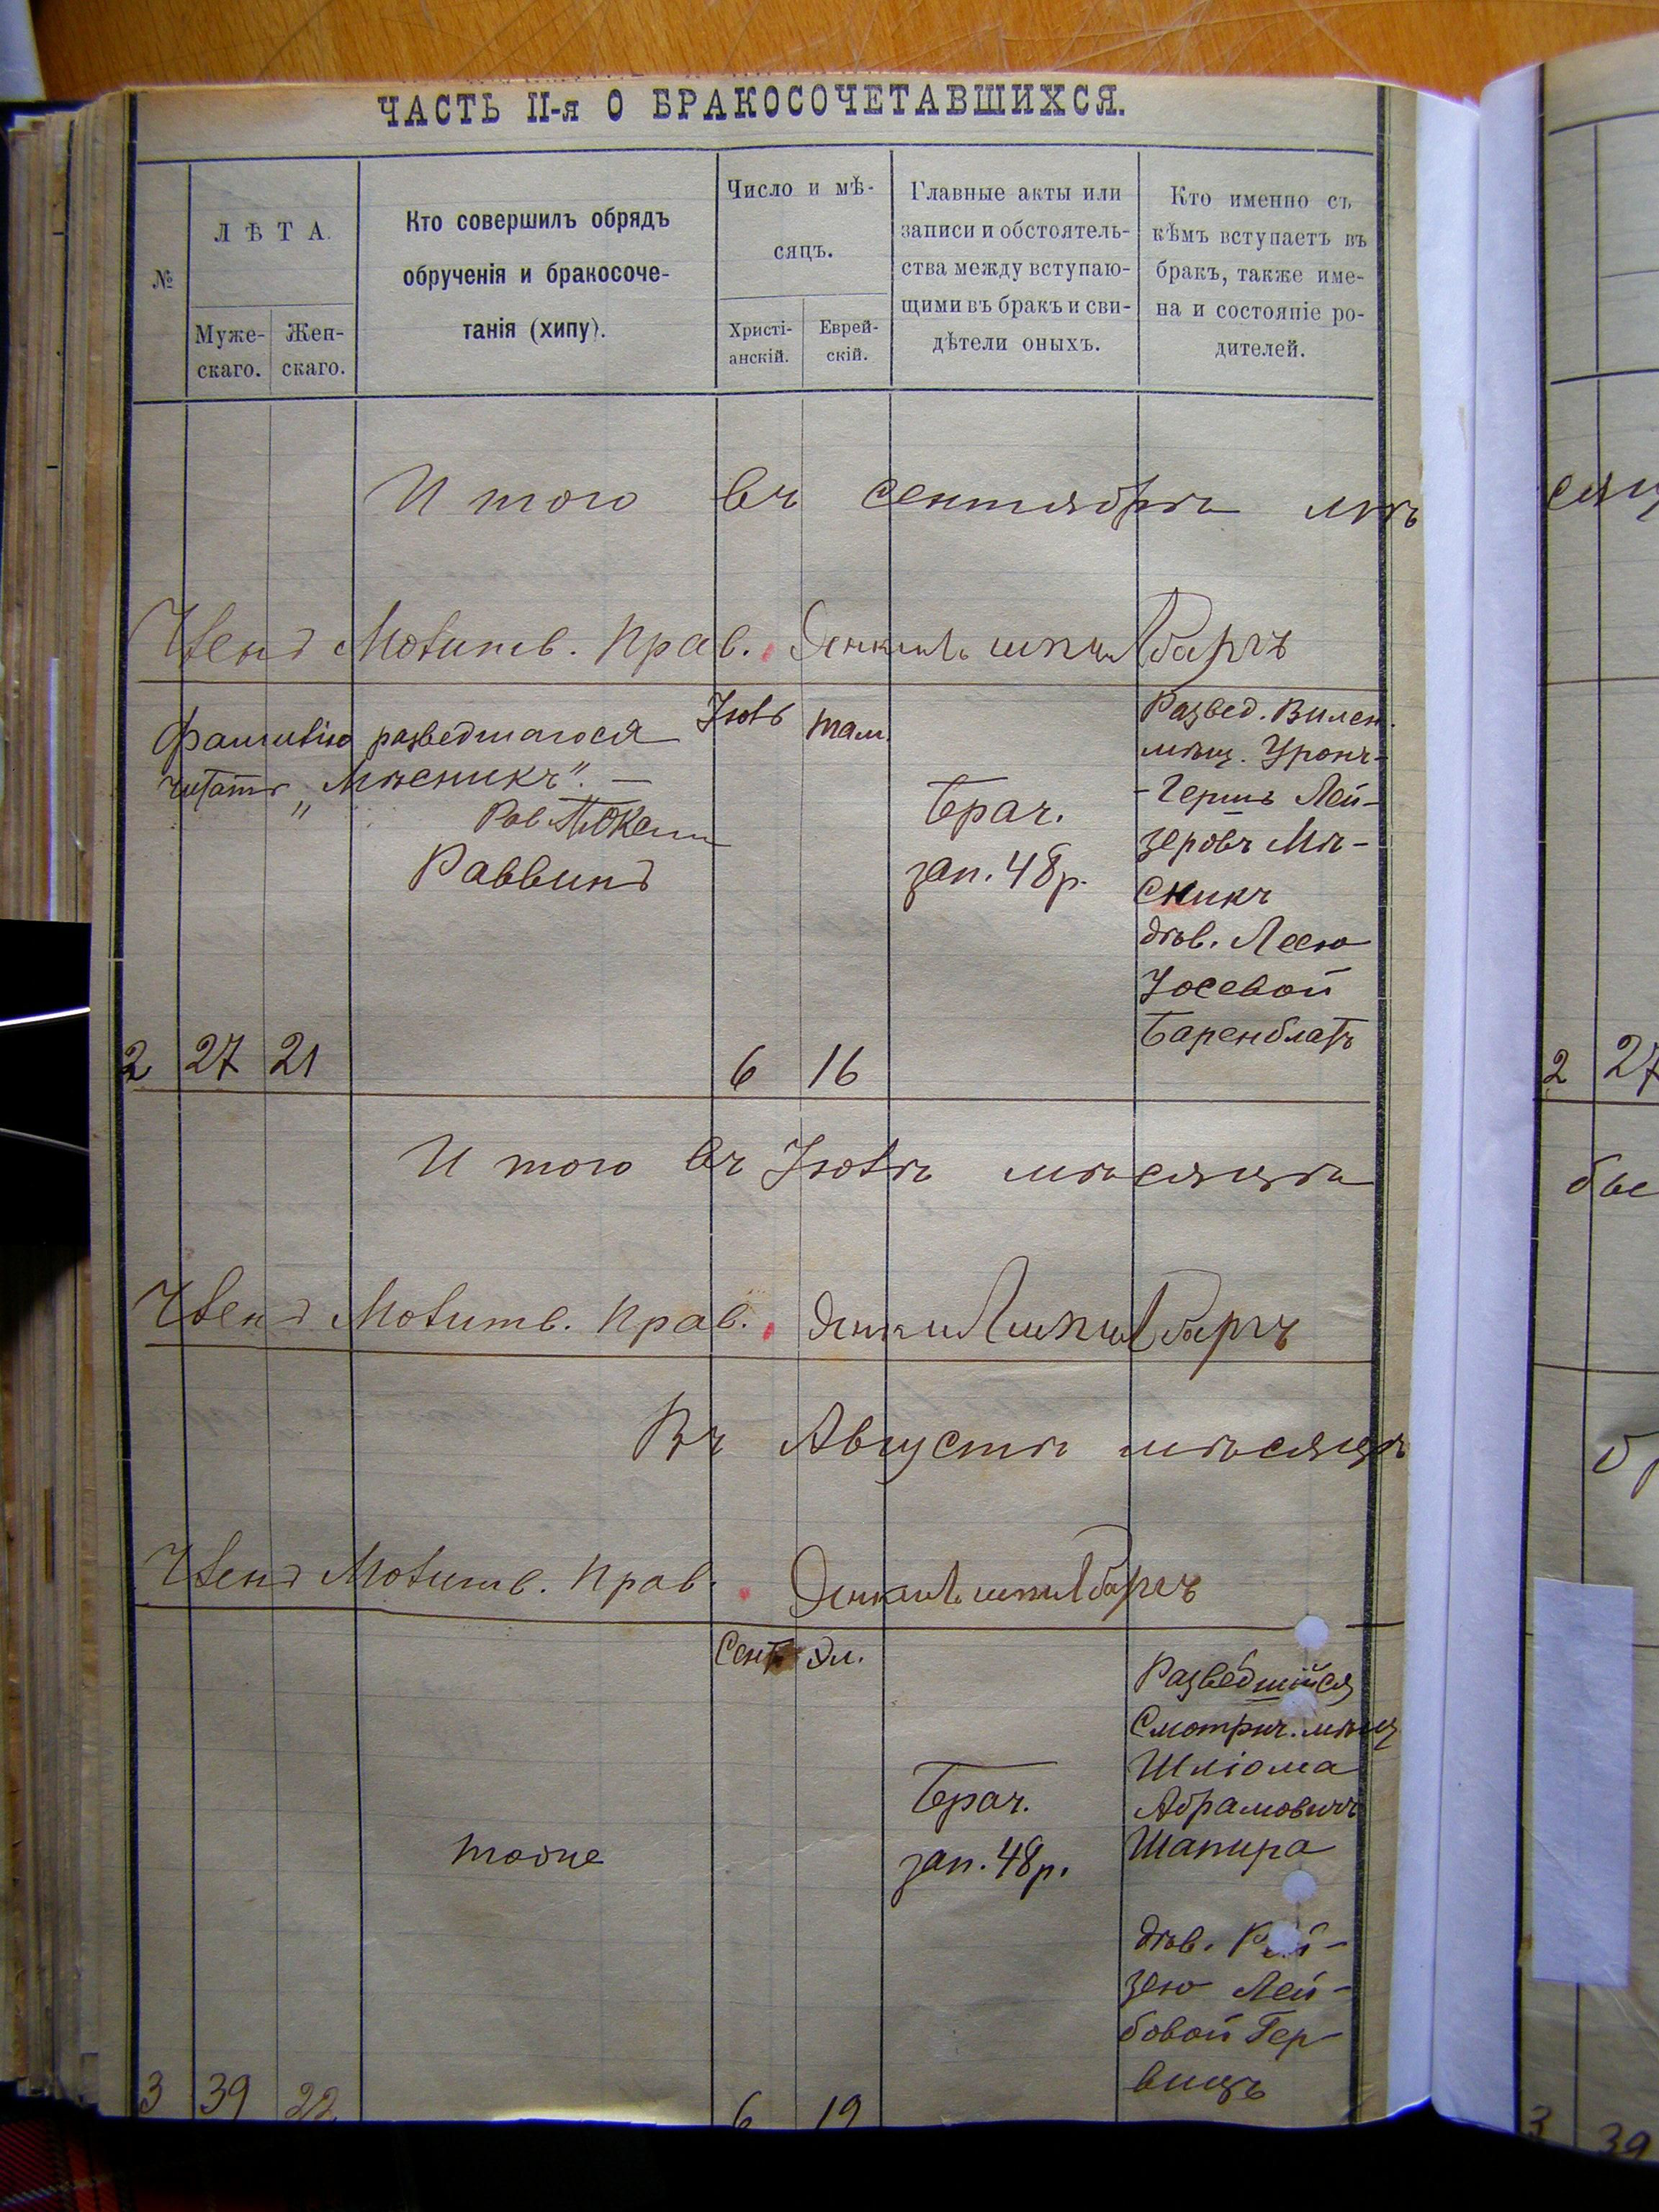 ЧАСТЬ II-я О БРАКОСОЧЕТАВШИХСЯ.
№
ЛѢТА.
Муже-
скаго.
Жен-
скаго.
Кто совершилъ обрядъ
обрученія и бракосоче-
танія (хипу).
Число и мѣ-
сяцъ.
Христі-
анскій.
Еврей-
скій.
Главные акты или
записи и обстоятель-
ства между вступаю-
щими въ бракъ и сви-
дѣтели оныхъ.
Кто именно съ
кѣмъ вступаетъ въ
бракъ, также име-
на и состояніе ро-
дителей.
Итого въ сентябрѣ мѣ
Членъ Молитв. Прав.
Фамилію разведшагося
читать „Мѣсникъ“. —
Раввинъ
Іюль
Там.
Брач.
зап. 48 р.
Развед. Вилен.
мѣщ.
-Гершъ Лей-
зеровъ Мѣ-
сникъ
дѣв. Лею
Іосевой
Баренблатъ
2 27 21 6 16
Итого въ Іюлѣ мѣсяцѣ
Членъ Молитв. Прав.
Въ Августѣ мѣсяцѣ
Членъ Молитв. Прав.
Сент. Эл.
тоже
Брач.
зап. 48 р.
Разведшійся
Смотрич. мѣщ
Шліома
Абрамовичъ
Шапира
дѣв.
зею Лей-
бовой Гер-
вицъ
3 39 22 6 19
сяц
2 27
3 39